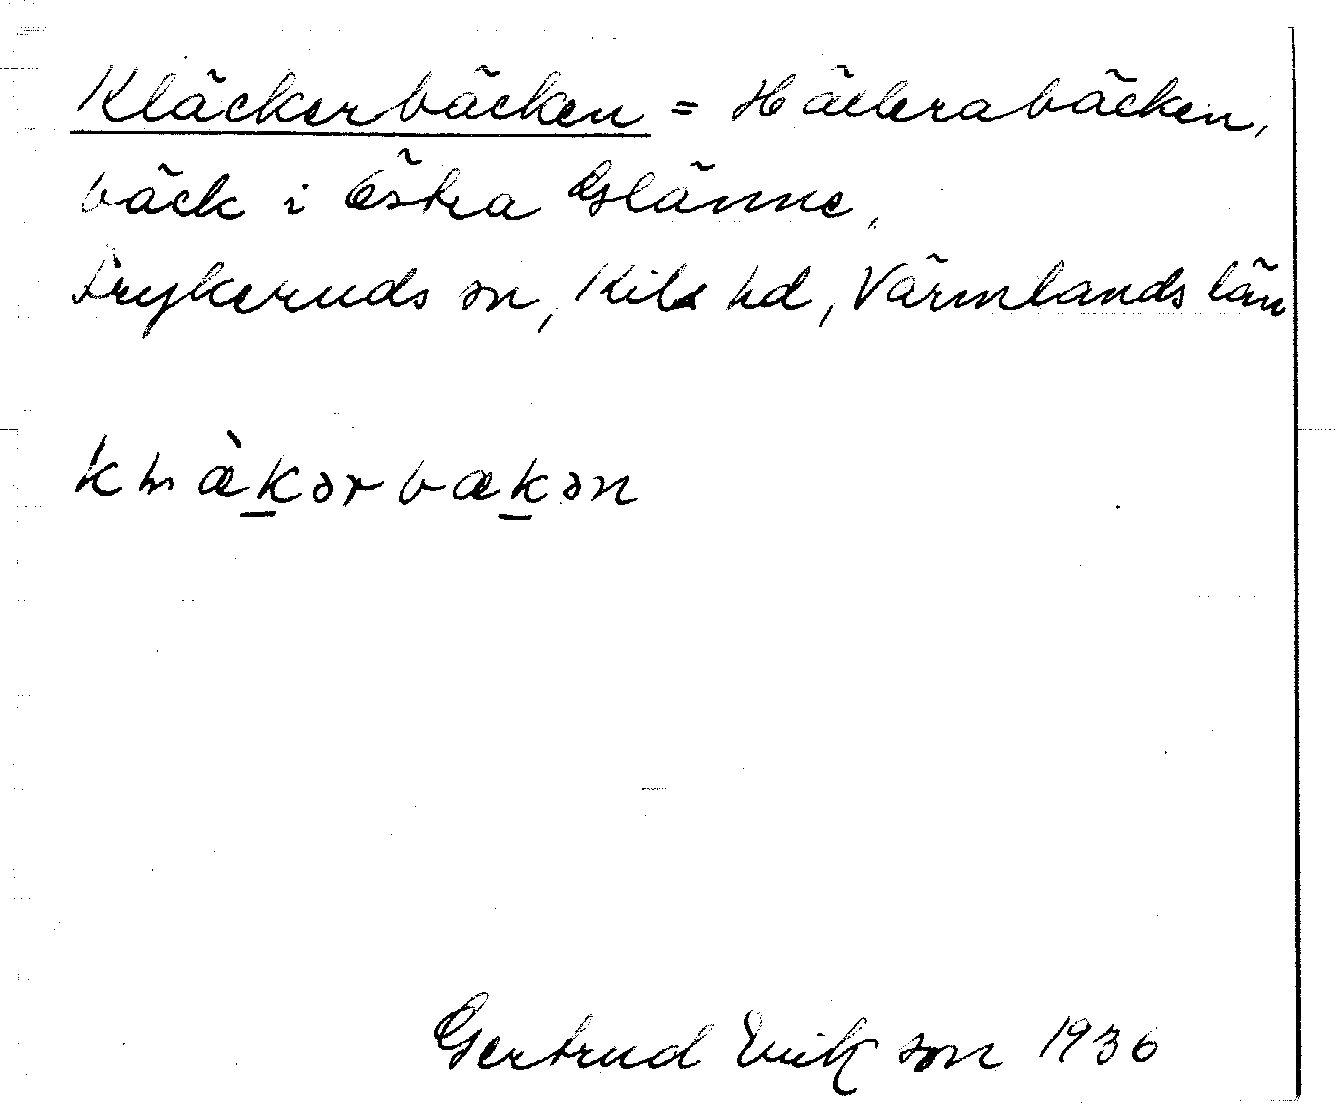 Kläckerbäcken = Hällerabäcken,
bäck i Östra Glänne,
Frykeruds sn, Kils hd, Värmlands län
Gertrud Erikson 1936